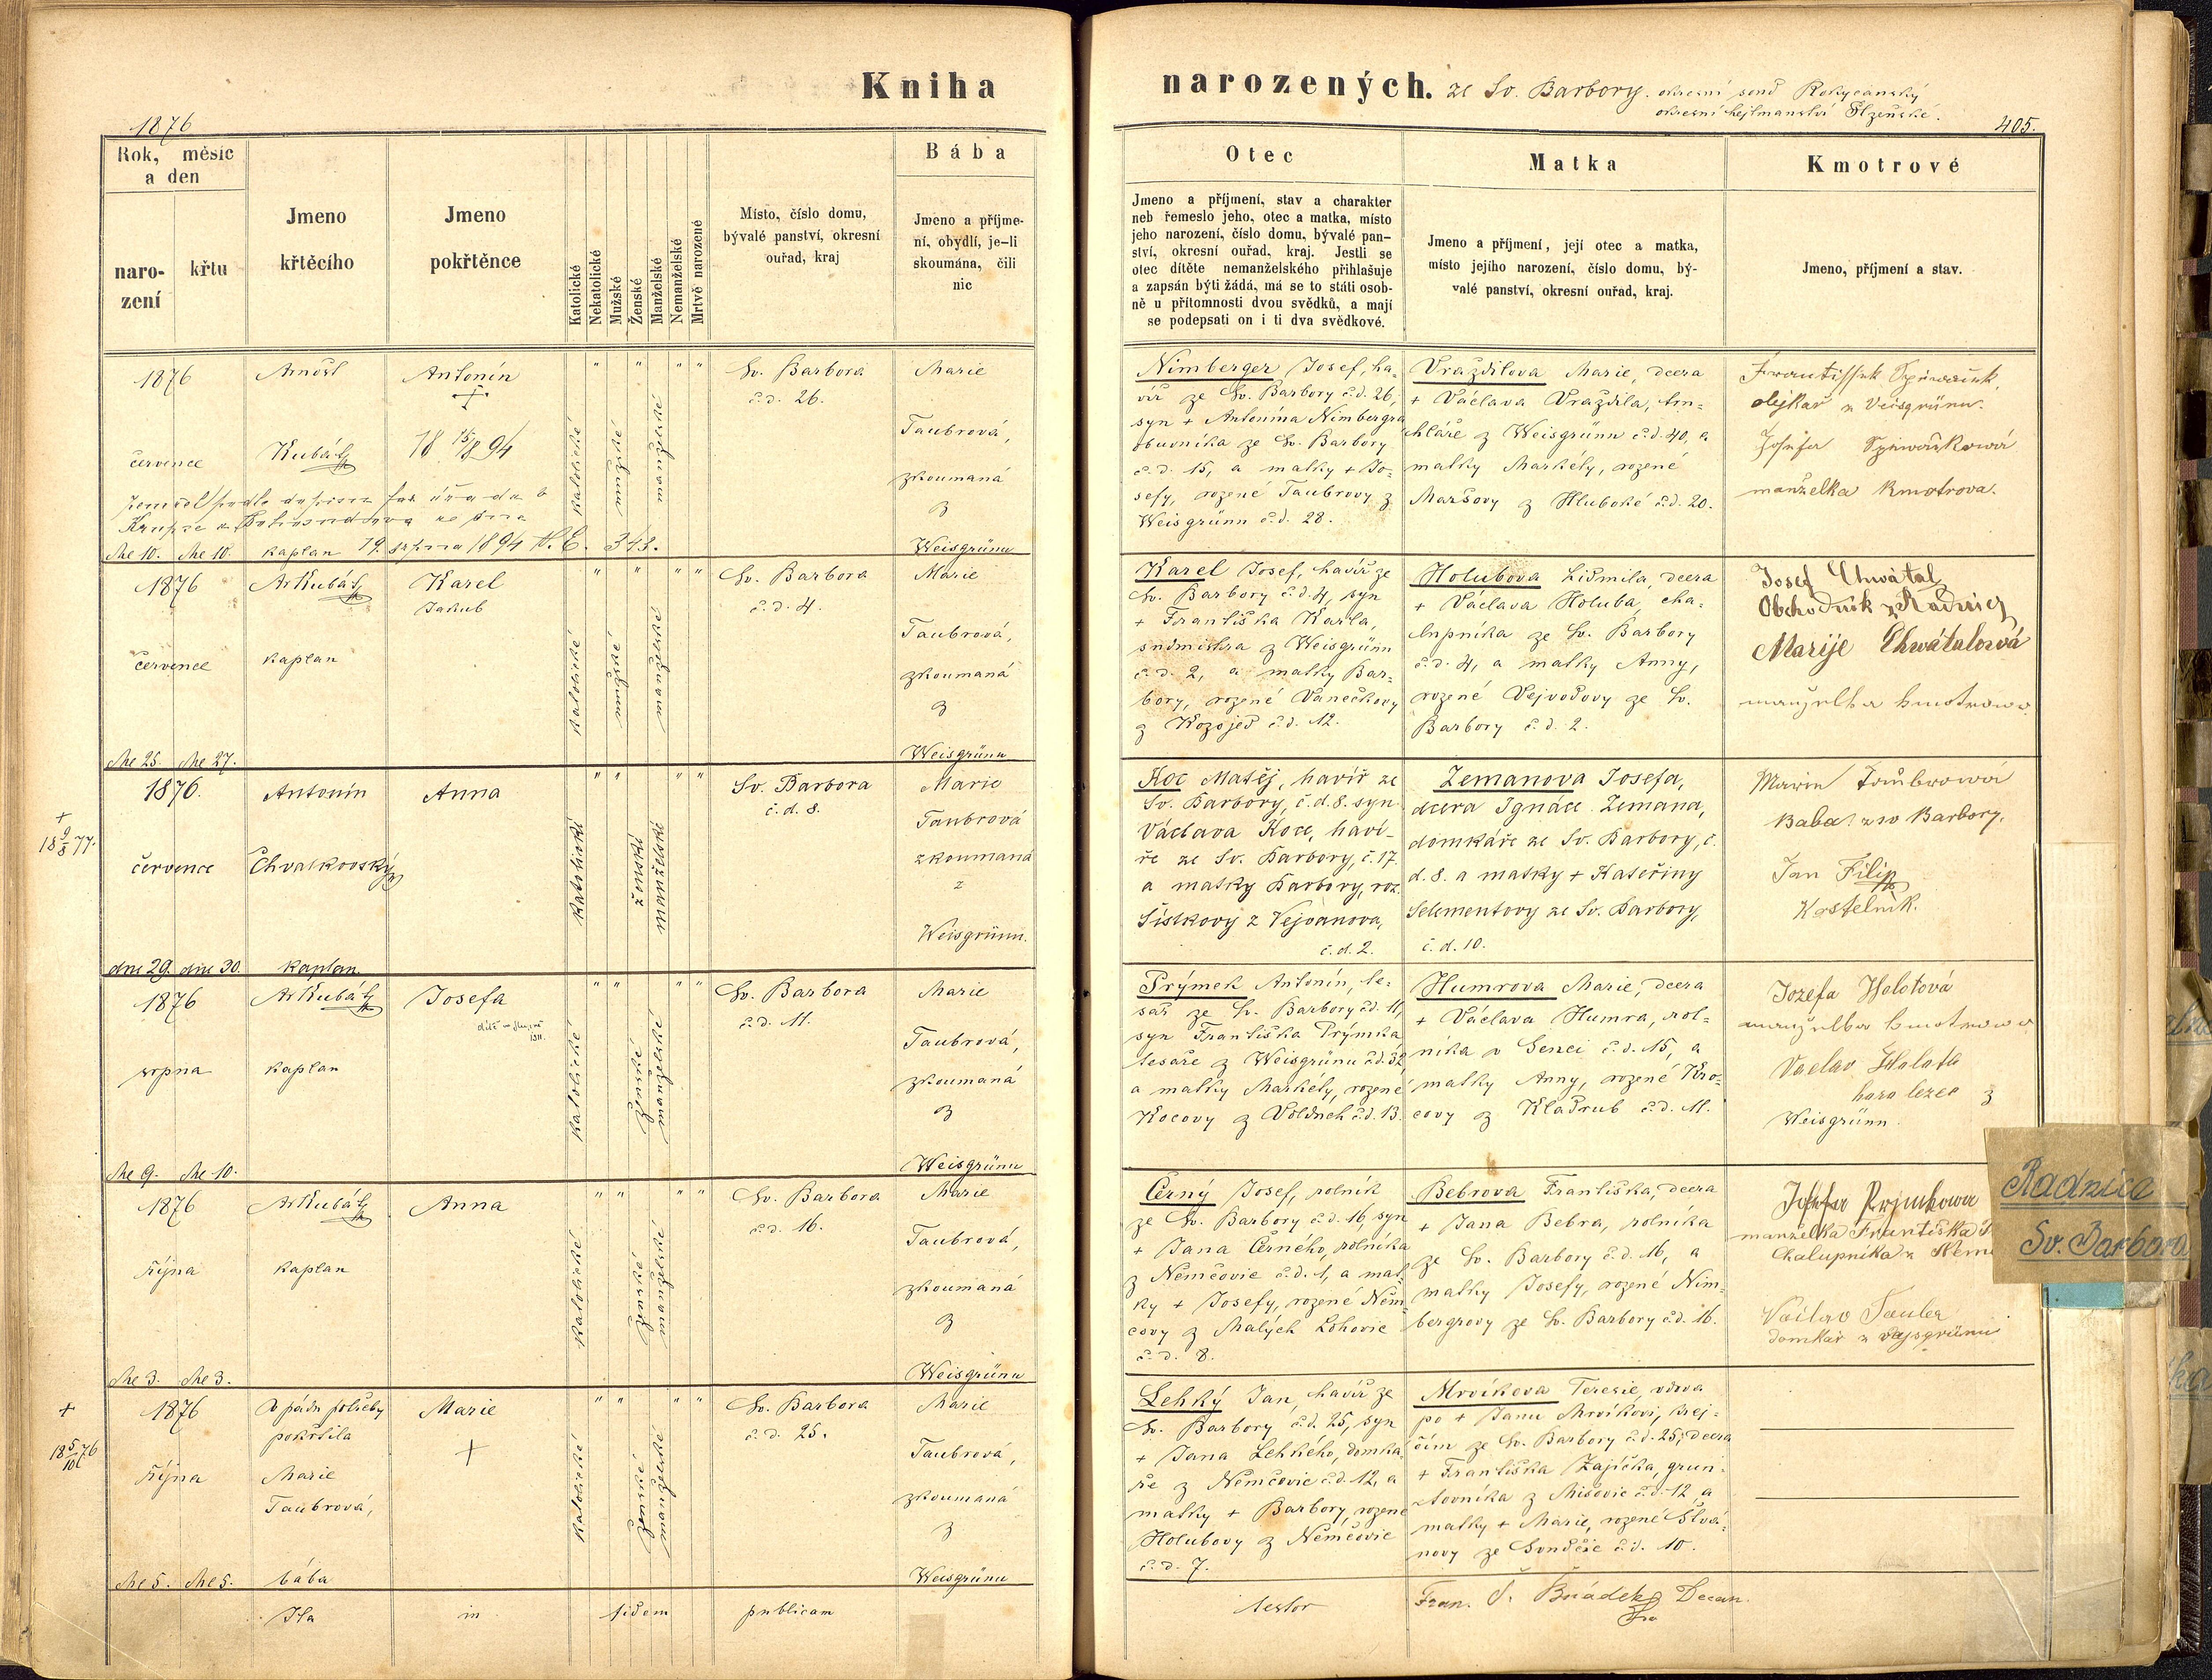 Kniha
narozených. ze Sv. Barbory. okresní soud Rokycanský
okresní hejtmanství Plzeňské.
1876
405.
Rok, měsíc
a den
naro-
zení
křtu
Jmeno
křtěcího
Jmeno
pokřtěnce
Katolické
Nekatolické
Mužské
Ženské
Manželské
Nemanželské
Mrtvě narozené
Místo, číslo domu,
bývalé panství, okresní
ouřad, kraj
Bába
Jmeno a příjme-
ní, obydlí, je-li
skoumána, čili
nic
Otec
Jmeno a příjmení, stav a charakter
neb řemeslo jeho, otec a matka, místo
jeho narození, číslo domu, bývalé pan-
ství, okresní ouřad, kraj. Jestli se
otec dítěte nemanželského přihlašuje
a zapsán býti žádá, má se to státi osob-
ně u přítomnosti dvou svědků, a mají
se podepsati on i ti dva svědkové.
Matka
Jmeno a příjmení, její otec a matka,
místo jejího narození, číslo domu, bý-
valé panství, okresní ouřad, kraj.
Kmotrové
Jmeno, příjmení a stav.
1876
července
dne 10. dne 10.
Arnošt
Kubát
kaplan 19. srpna 1894 N. E. 343.
Antonín
18 15/8 94
katolické
mužské
manželské
Sv. Barbora
č. d. 26.
Marie
Taubrová,
zkoumaná
z
Weisgrünu
Nimberger Josef, ha-
víř ze Sv. Barbory č. d. 26,
syn + Antonína Nimbergra
obuvníka ze Sv. Barbory
č. d. 15, a matky + Jo-
sefy, rozené Taubrovy z
Weisgrünu č. d. 28.
Vraždilova Marie, dcera
+ Václava Vraždila, tru-
hláře z Weisgrünu č. d. 40, a
matky Markéty, rozené
Maršovy z Hluboké č. d. 20.
olejkař z Veisgrünu.
Josefa
manželka kmotrova.
1876
července
dne 25. dne 27.
Ar Kubát
kaplan
Karel
Jakub
katolické
mužské
manželské
Sv. Barbora
č. d. 4.
Marie
Taubrová,
zkoumaná
z
Weisgrünu
Karel Josef, havíř ze
Sv. Barbory č. d. 4, syn
+ Františka Karla,
sudmistra z Weisgrünu
č. d. 2, a matky Bar-
bory, rozené Vanečkovy
z Kozojed č. d. 12.
Holubova Lidmila, dcera
+ Václava Holuba, cha-
lupníka ze Sv. Barbory
č. d. 4, a matky Anny,
rozené Vejvodovy ze Sv.
Barbory č. d. 2.
Josef Chwátal
Obchodník z Radnic
Marije Chwátalová
manželka kmotrowa
+
18 9/8 77.
1876.
července
dne 29. dne 30.
Antonín
Chvalkovský
kaplan.
Anna
katolické
ženské
manželské
Sv. Barbora
č. d. 8.
Marie
Taubrová
zkoumaná
z
Weisgrünu.
Koc Matěj, havíř ze
Sv. Barbory, č. d. 8. syn
Václava Koce, haví-
ře ze Sv. Barbory, č. 17.
a matky Barbory, roz.
Šístkovy z Vejvanova,
č. d. 2.
Zemanova Josefa,
dcera Ignáce Zemana,
domkáře ze Sv. Barbory, č.
d. 8. a matky + Kateřiny
Selementovy ze Sv. Barbory,
č. d. 10.
Marie
Baba z sv Barbory.
Jan Filip
Kostelník.
1876
srpna
dne 9. dne 10.
Ar Kubát
kaplan
Josefa
1911.
katolické
ženské
manželské
Sv. Barbora
č. d. 11.
Marie
Taubrová,
zkoumaná
z
Weisgrünu
Prýmek Antonín, te-
sař ze Sv. Barbory č. d. 11,
syn Františka Prýmka
tesaře z Weisgrünu č. d. 32,
a matky Markéty, rozené
Kocovy z Volduch č. d. 13.
Humrova Marie, dcera
+ Václava Humra, rol-
níka v Senci č. d. 15, a
matky Anny, rozené Kro-
covy z Kladrub č. d. 11.
Jozefa Holotová
manželka kmotrowa
Vaclav Holota
z
Weisgrünn
1876
října
dne 3. dne 3.
Ar Kubát
kaplan
Anna
katolické
ženské
manželské
Sv. Barbora
č. d. 16.
Marie
Taubrová,
zkoumaná
z
Weisgrünu
Černý Josef, rolník
ze Sv. Barbory č. d. 16, syn
+ Jana Černého, rolníka
z Němčovic č. d. 1, a mat-
ky + Josefy, rozené Něm-
covy z Malých Lohovic
č. d. 8.
Bebrova Františka, dcera
+ Jana Bebra, rolníka
ze Sv. Barbory č. d. 16, a
matky Josefy, rozené Nim-
bergrovy ze Sv. Barbory č. d. 16.
Josefa Prjmkowa
manželka Františka
Chalupníka z Něm
Václav Tauber
domkář z
Radnice
Sv. Barbora
+
18 5/10 76
1876
října
dne 5. dne 5.
V pádu potřeby
pokřtila
Marie
Taubrová,
bába
Marie
+
katolické
ženské
manželské
Sv. Barbora
č. d. 25.
Marie
Taubrová,
zkoumaná
z
Weisgrünu
Lehký Jan, havíř ze
Sv. Barbory č. d. 25, syn
+ Jana Lehkého, domká-
ře z Němčovic č. d. 12, a
matky + Barbory, rozené
Holubovy z Němčovic
č. d. 7.
Mrvíkova Teresie, vdova
po + Janu Mrvíkovi, krej-
čím ze Sv. Barbory č. d. 25, dcera
+ Františka Zajíčka, grun-
tovníka z Mišovic č. d. 12, a
matky + Marie, rozené
ze č. d. 10.
Ita in fidem publicam
testor
Fran. Š. Decan.